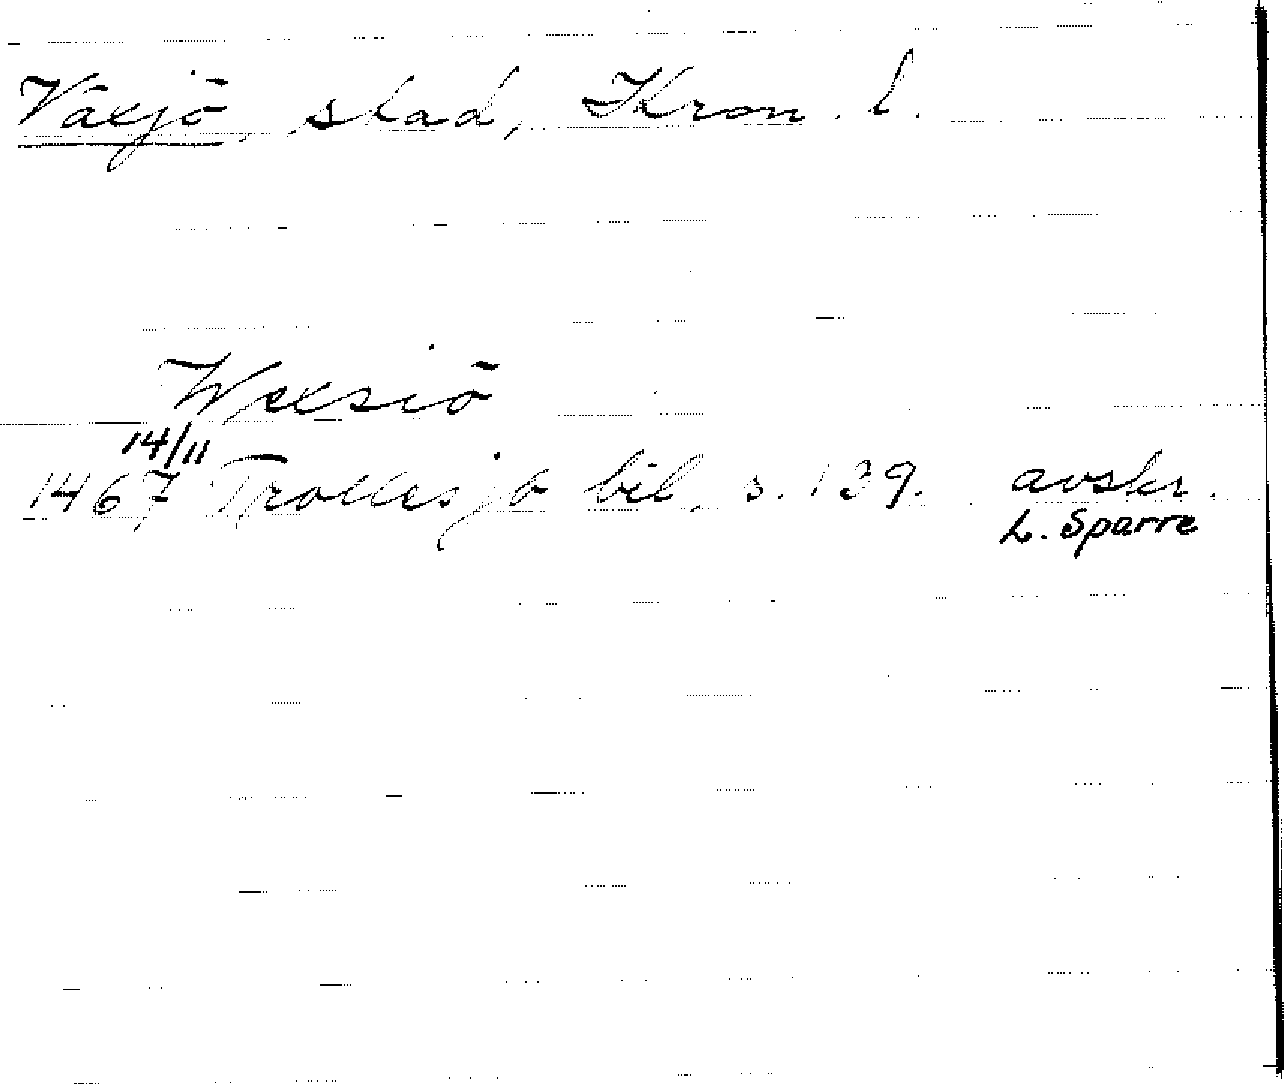 Växjö, stad, Kron. l.
Wexsiö
14/11
1467 Trollesjö bil. s. 139. avskr.
L. Sparre